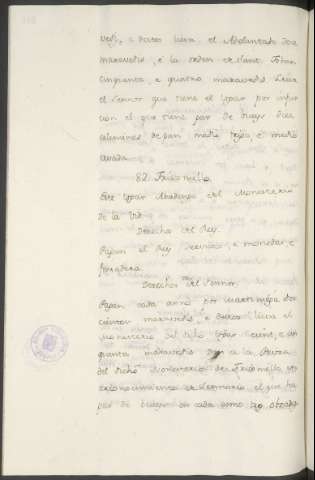 vedis, e destos lieva el Adelantado doce
maravedis, e la orden de Sant Johan
cinquenta e quatro maravedis. Lieva
el Sennor que tiene el logar por infur
cion el que tiene par de bueys dies
celemines de pan medio trigo e medio
cevada.
82. Fresomella.
Este logar Abadengo del Monesterio
de la Vid.
Derechos del Rey.
Pagan el Rey servicios, e monedas e
fonsadera.
Derechos del Sennor.
Pagan cada anno por martiniega dos
cientos maravedis e destos lieva el
monesterio del dicho logar cient, e cin
quenta maravedis
del dicho Monesterio de Fresomella, en
reconoscimiento de Sennorio el que ha
par de bueys da cada anno